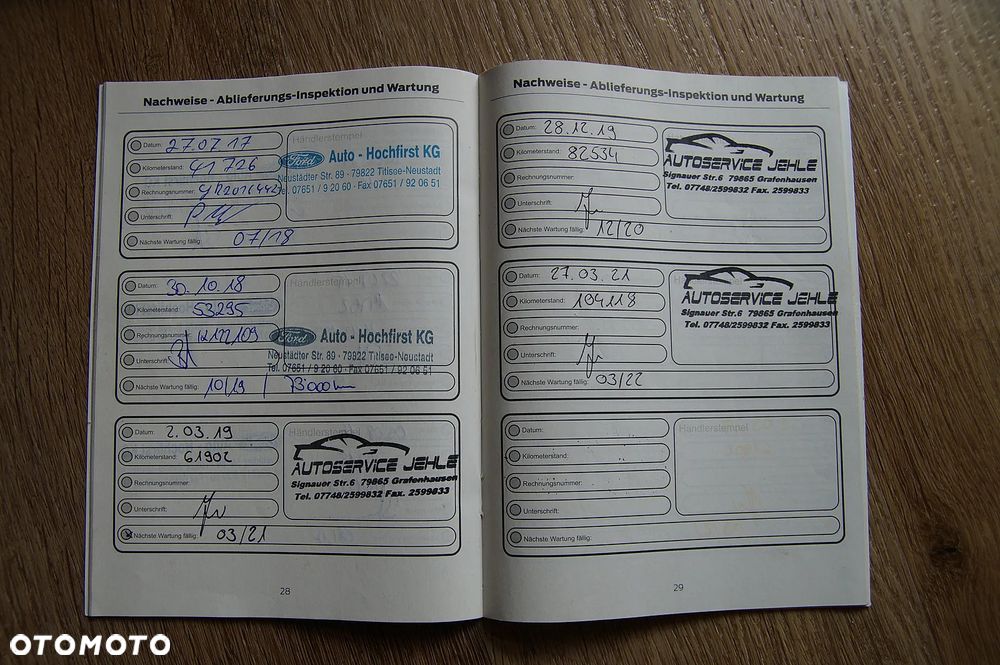 Nachweise - Ablieferungs-Inspektion und Wartung
Datum: 27.07.17
Kilometerstand: 41 726
Rechnungsnummer:
Unterschrift:
Nächste Wartung fällig: 07/18
Händlerstempel
Ford Auto - Hochfirst KG
Neustädter Str. 89 - 79822 Titisee-Neustadt
Tel. 07651 / 9 20 60 - Fax 07651 / 92 06 51
Datum: 30.10.18
Kilometerstand: 53295
Rechnungsnummer:
Unterschrift:
Nächste Wartung fällig: 10/19 /
Händlerstempel
Ford Auto - Hochfirst KG
Neustädter Str. 89 - 79822 Titisee-Neustadt
Tel. 07651 / 9 20 60 - Fax 07651 / 92 06 51
Datum: 2.03.19
Kilometerstand: 61902
Rechnungsnummer:
Unterschrift:
Nächste Wartung fällig: 03/21
Händlerstempel
AUTOSERVICE JEHLE
Signauer Str.6 79865 Grafenhausen
Tel. 07748/2599832 Fax. 2599833
28
Nachweise - Ablieferungs-Inspektion und Wartung
Datum: 28.12.19
Kilometerstand: 82534
Rechnungsnummer:
Unterschrift:
Nächste Wartung fällig: 12/20
AUTOSERVICE JEHLE
Signauer Str.6 79865 Grafenhausen
Tel. 07748/2599832 Fax. 2599833
Datum: 27.03.21
Kilometerstand: 104118
Rechnungsnummer:
Unterschrift:
Nächste Wartung fällig: 03/22
AUTOSERVICE JEHLE
Signauer Str.6 79865 Grafenhausen
Tel. 07748/2599832 Fax. 2599833
Datum:
Kilometerstand:
Rechnungsnummer:
Unterschrift:
Nächste Wartung fällig:
Händlerstempel
29
OTOMOTO